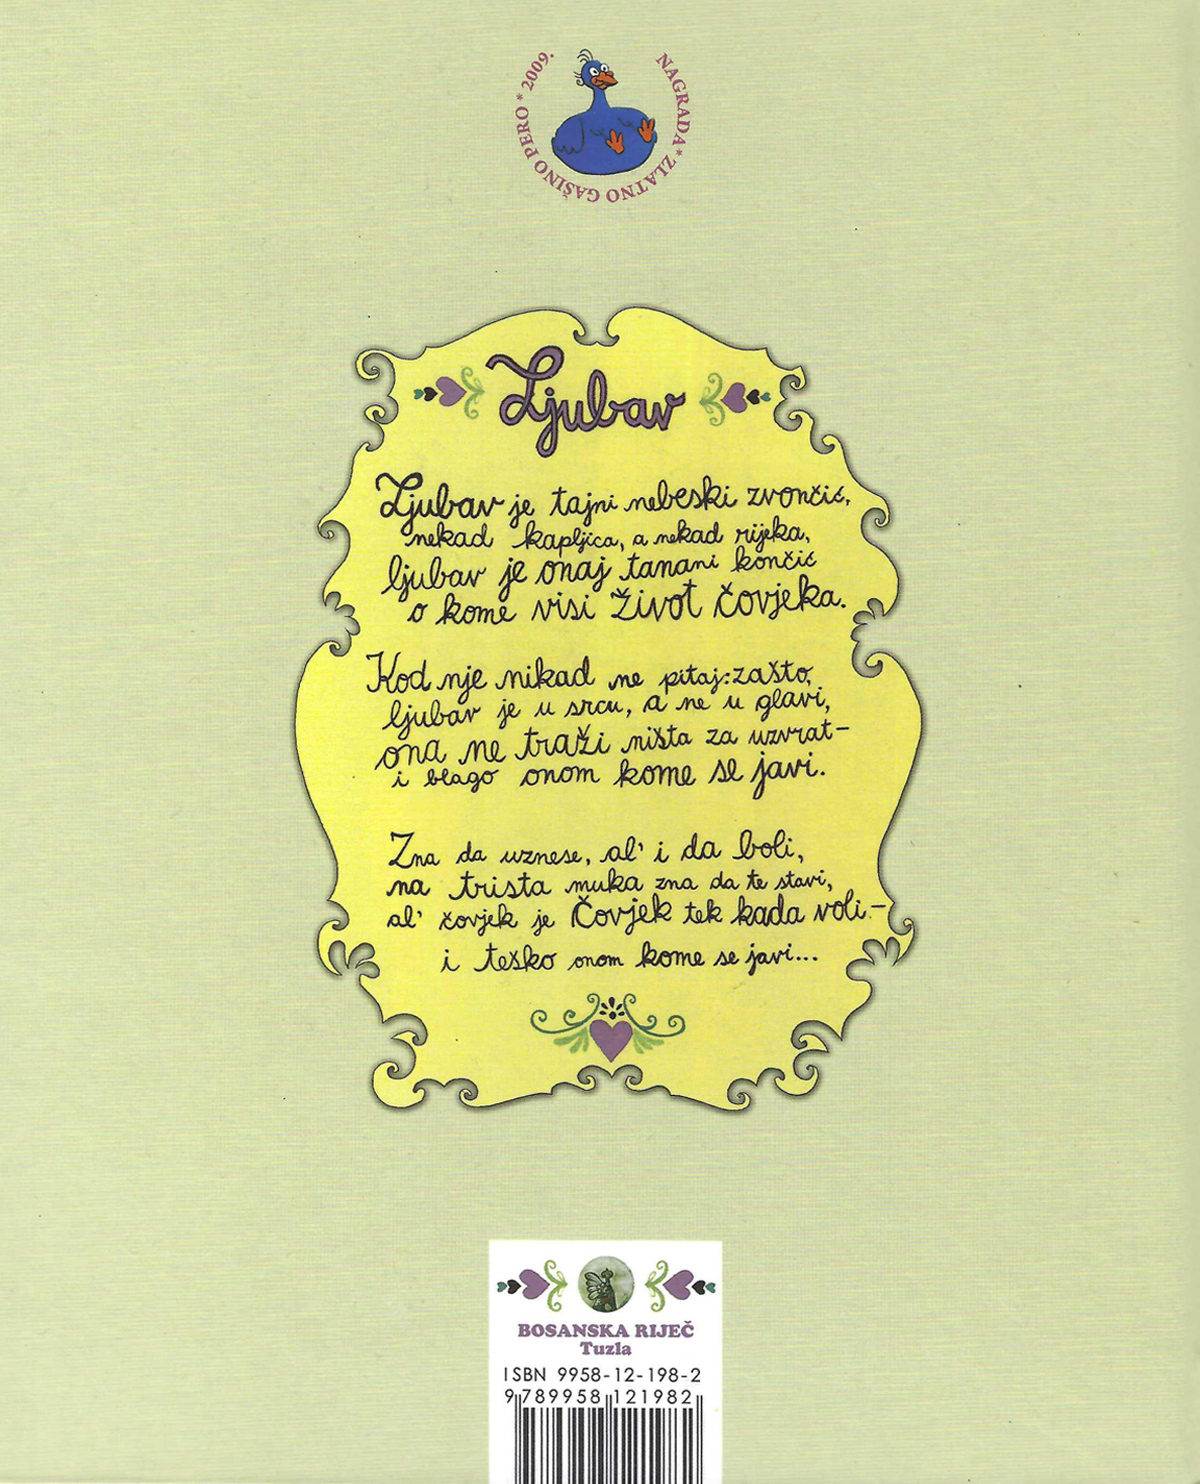 NAGRADA * ZLATNO GAŠINO PERO * 2009.
Ljubav
Ljubav je tajni nebeski zvončić,
nekad kapljica, a nekad rijeka,
ljubav je onaj tanani končić
o kome visi život čovjeka.
Kod nje nikad ne pitaj: zašto,
ljubav je u srcu, a ne u glavi,
ona ne traži ništa za uzvrat–
i blago onom kome se javi.
Zna da uznese, al' i da boli,
na trista muka zna da te stavi,
al' čovjek je Čovjek tek kada voli.–
i teško onom kome se javi...
BOSANSKA RIJEČ
Tuzla
ISBN 9958-12-198-2
9 789958 121982